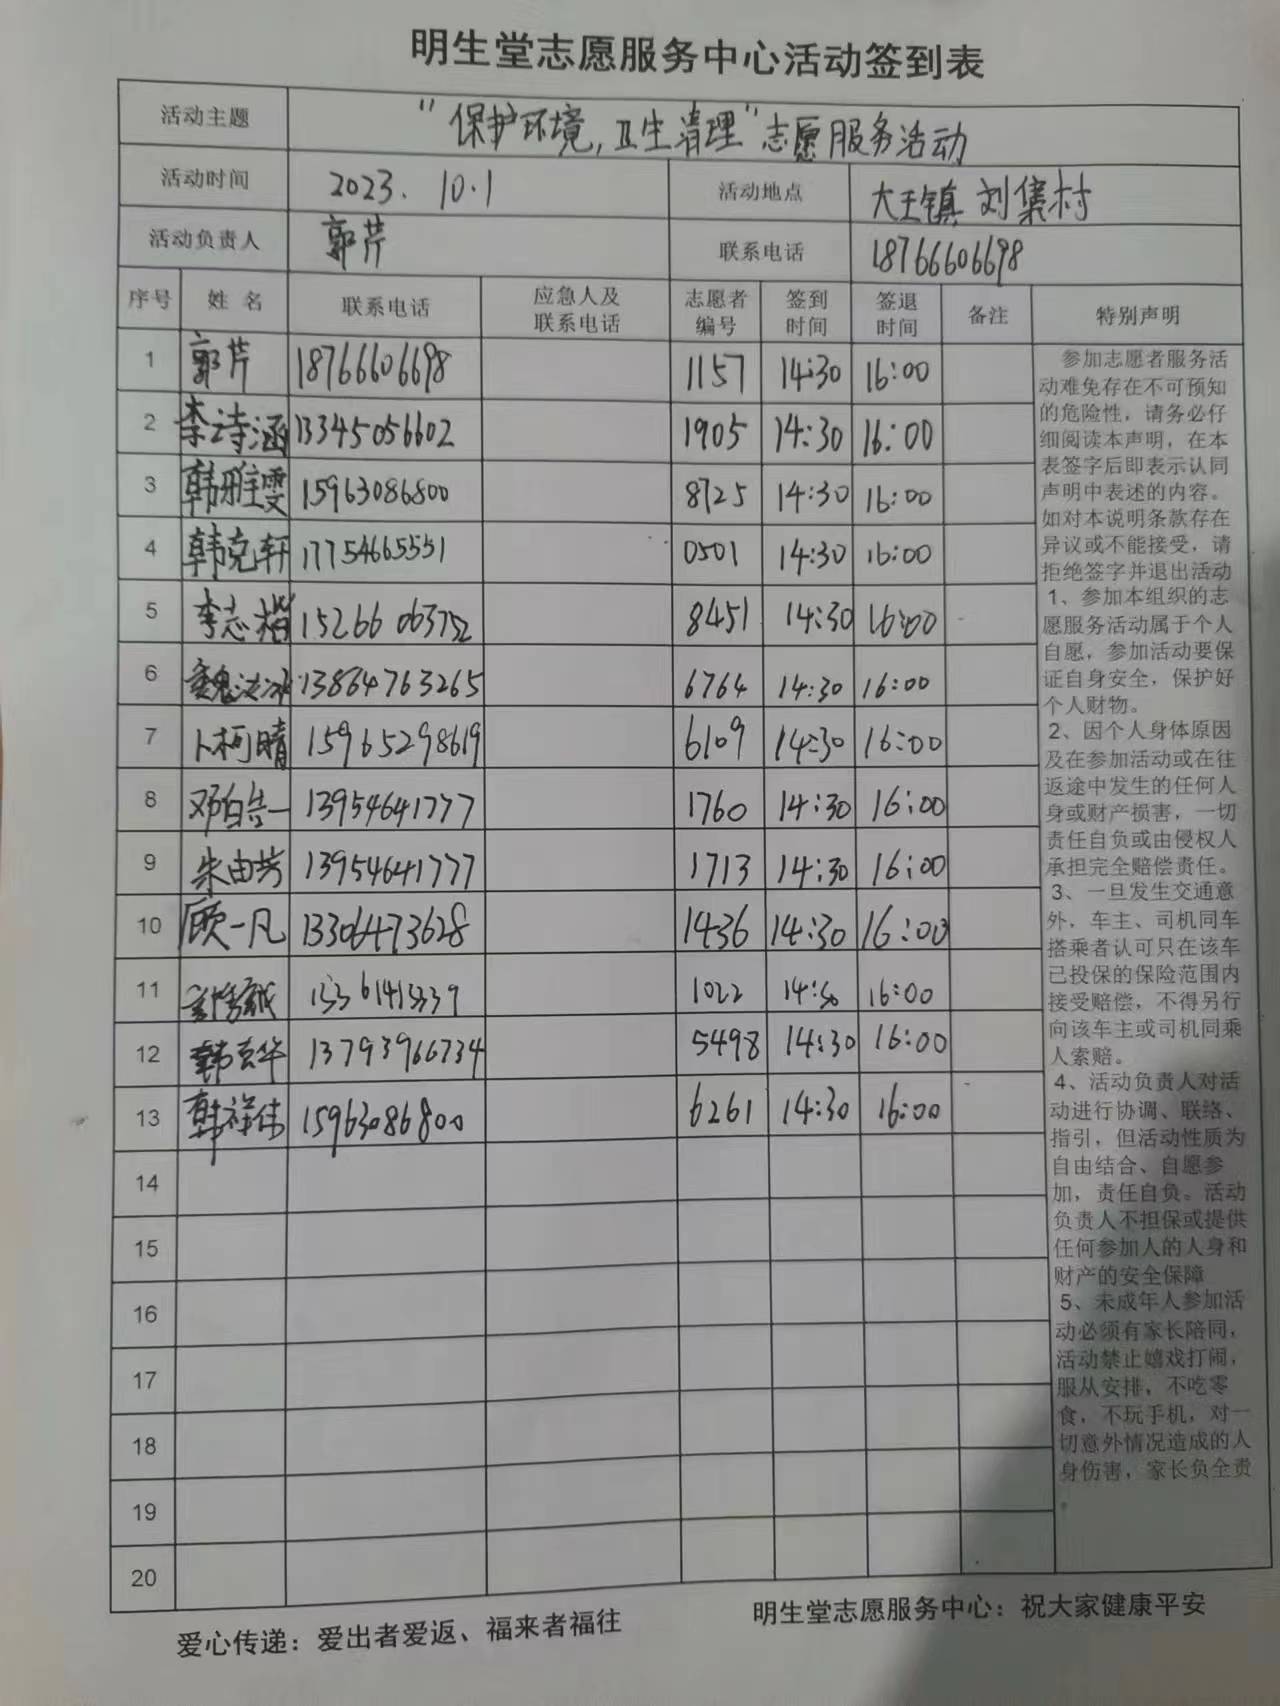 明生堂志愿服务中心活动签到表
活动主题 "保护环境,卫生清理"志愿服务活动
活动时间 2023.10.1 活动地点 大王镇 刘集村
活动负责人 郭芹 联系电话 18766606698
序号 姓名 联系电话 应急人及联系电话 志愿者编号 签到时间 签退时间 备注 特别声明
1 郭芹 18766606698 1157 14:30 16:00
2 李诗涵 13345056602 1905 14:30 16:00
3 韩雅雯 15963086800 8725 14:30 16:00
4 韩克轩 17754665551 0501 14:30 16:00
5 李志楷 15266063752 8451 14:30 16:00
6 魏 13864763265 6764 14:30 16:00
7 卜柯晴 15965298619 6109 14:30 16:00
8 邓皓一 13954641777 1760 14:30 16:00
9 朱由芳 13954641777 1713 14:30 16:00
10 顾一凡 13306473628 1436 14:30 16:00
11 1022 14:30 16:00
12 韩克华 13793966734 5498 14:30 16:00
13 韩祥伟 15963086800 6261 14:30 16:00
14
15
16
17
18
19
20
参加志愿者服务活
动难免存在不可预知
的危险性，请务必仔
细阅读本声明，在本
表签字后即表示认同
声明中表述的内容。
如对本说明条款存在
异议或不能接受，请
拒绝签字并退出活动
1、参加本组织的志
愿服务活动属于个人
自愿，参加活动要保
证自身安全，保护好
个人财物。
2、因个人身体原因
及在参加活动或在往
返途中发生的任何人
身或财产损害，一切
责任自负或由侵权人
承担完全赔偿责任。
3、一旦发生交通意
外，车主、司机同车
搭乘者认可只在该车
已投保的保险范围内
接受赔偿，不得另行
向该车主或司机同乘
人索赔。
4、活动负责人对活
动进行协调、联络、
指引，但活动性质为
自由结合、自愿参
加，责任自负。活动
负责人不担保或提供
任何参加人的人身和
财产的安全保障
5、未成年人参加活
动必须有家长陪同，
活动禁止嬉戏打闹，
服从安排，不吃零
食，不玩手机，对一
切意外情况造成的人
身伤害，家长负全责
。
爱心传递：爱出者爱返、福来者福往
明生堂志愿服务中心：祝大家健康平安